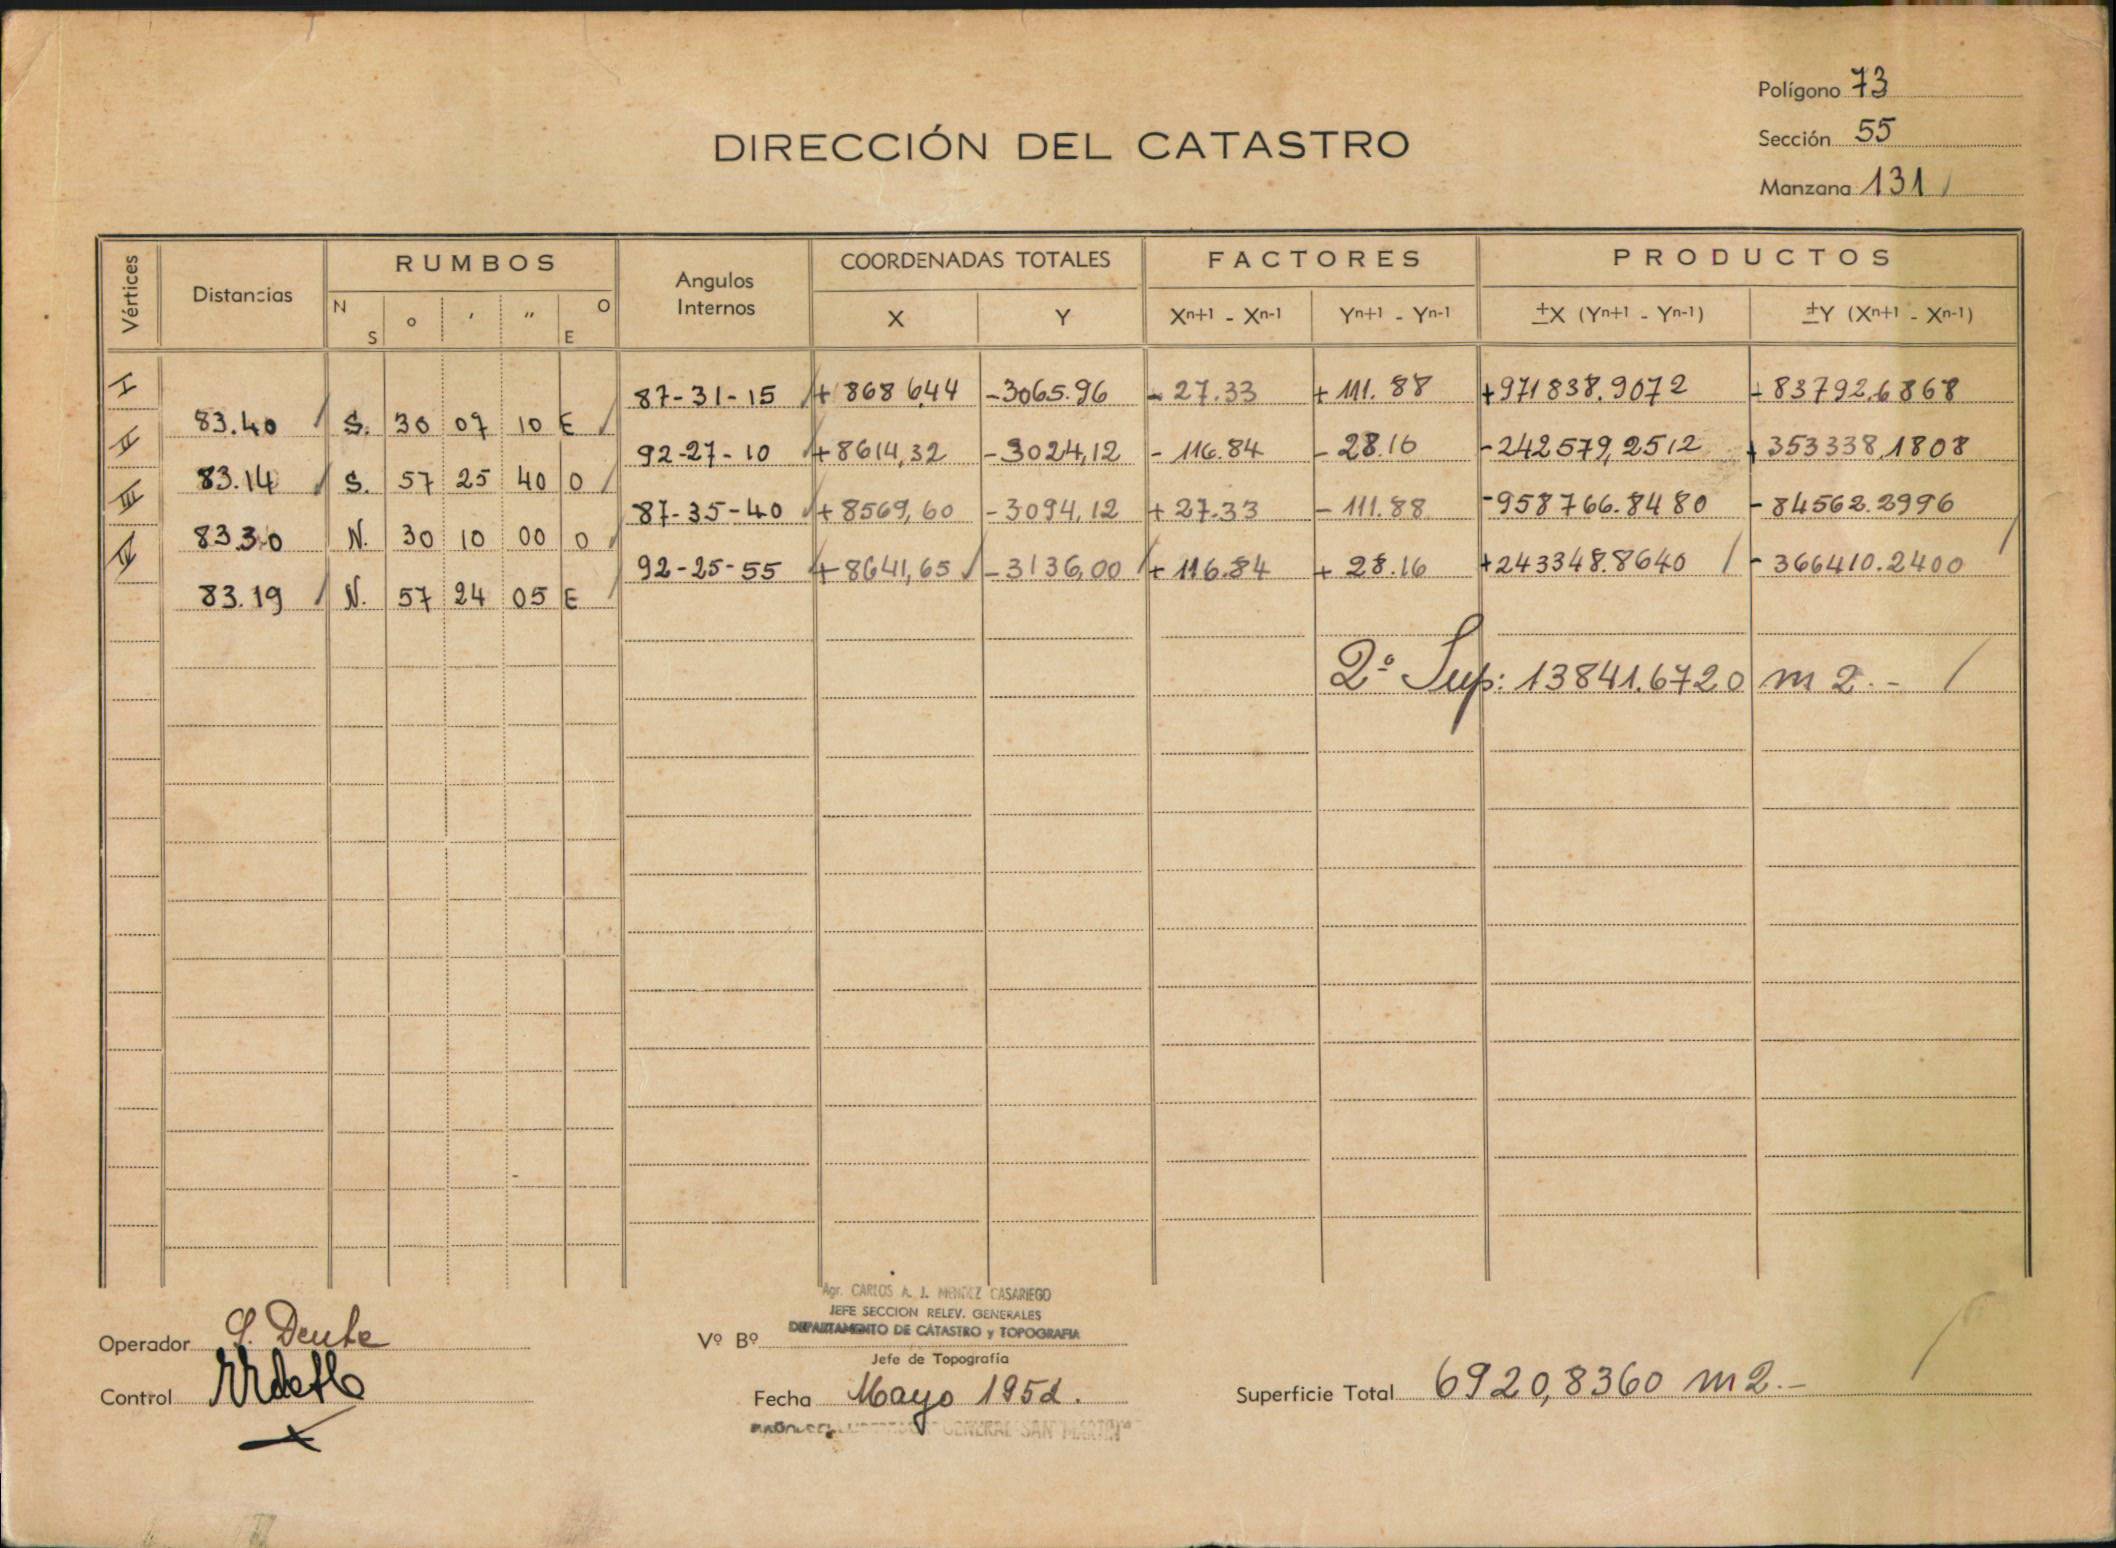 Polígono 73
DIRECCIÓN DEL CATASTRO
Sección 55
Manzana 131
Vértices
Distancias
RUMBOS
N S ° ' " O E
Angulos Internos
COORDENADAS TOTALES
X Y
FACTORES
Xn+1 - Xn-1 Yn+1 - Yn-1
PRODUCTOS
±X (Yn+1 - Yn-1) ±Y (Xn+1 - Xn-1)
I 87-31-15 + 8686.44 -3065.96 - 27.33 + 111.88 +971838.9072 + 83792.6868
83.40 S. 30 07 10 E
II 92-27-10 +8614,32 -3024,12 - 116.84 - 28.16 -242579,2512 + 353338,1808
83.14 S. 57 25 40 O
III 87-35-40 +8569,60 -3094,12 + 27.33 - 111.88 -958766.8480 - 84562.2996
83.30 N. 30 10 00 O
IV 92-25-55 +8641,65 -3136,00 + 116.84 + 28.16 +243348.8640 - 366410.2400
83.19 N. 57 24 05 E
2º Sup: 13841.6720 m 2.-
Agr. CARLOS A. J. MENDEZ CASARIEGO
JEFE SECCION RELEV. GENERALES
DEPARTAMENTO DE CATASTRO y TOPOGRAFIA
Operador
Vº Bº
Jefe de Topografía
Control
Fecha Mayo 195
Superficie Total 6920,8360 m2.-
GENERAL SAN MARTIN"